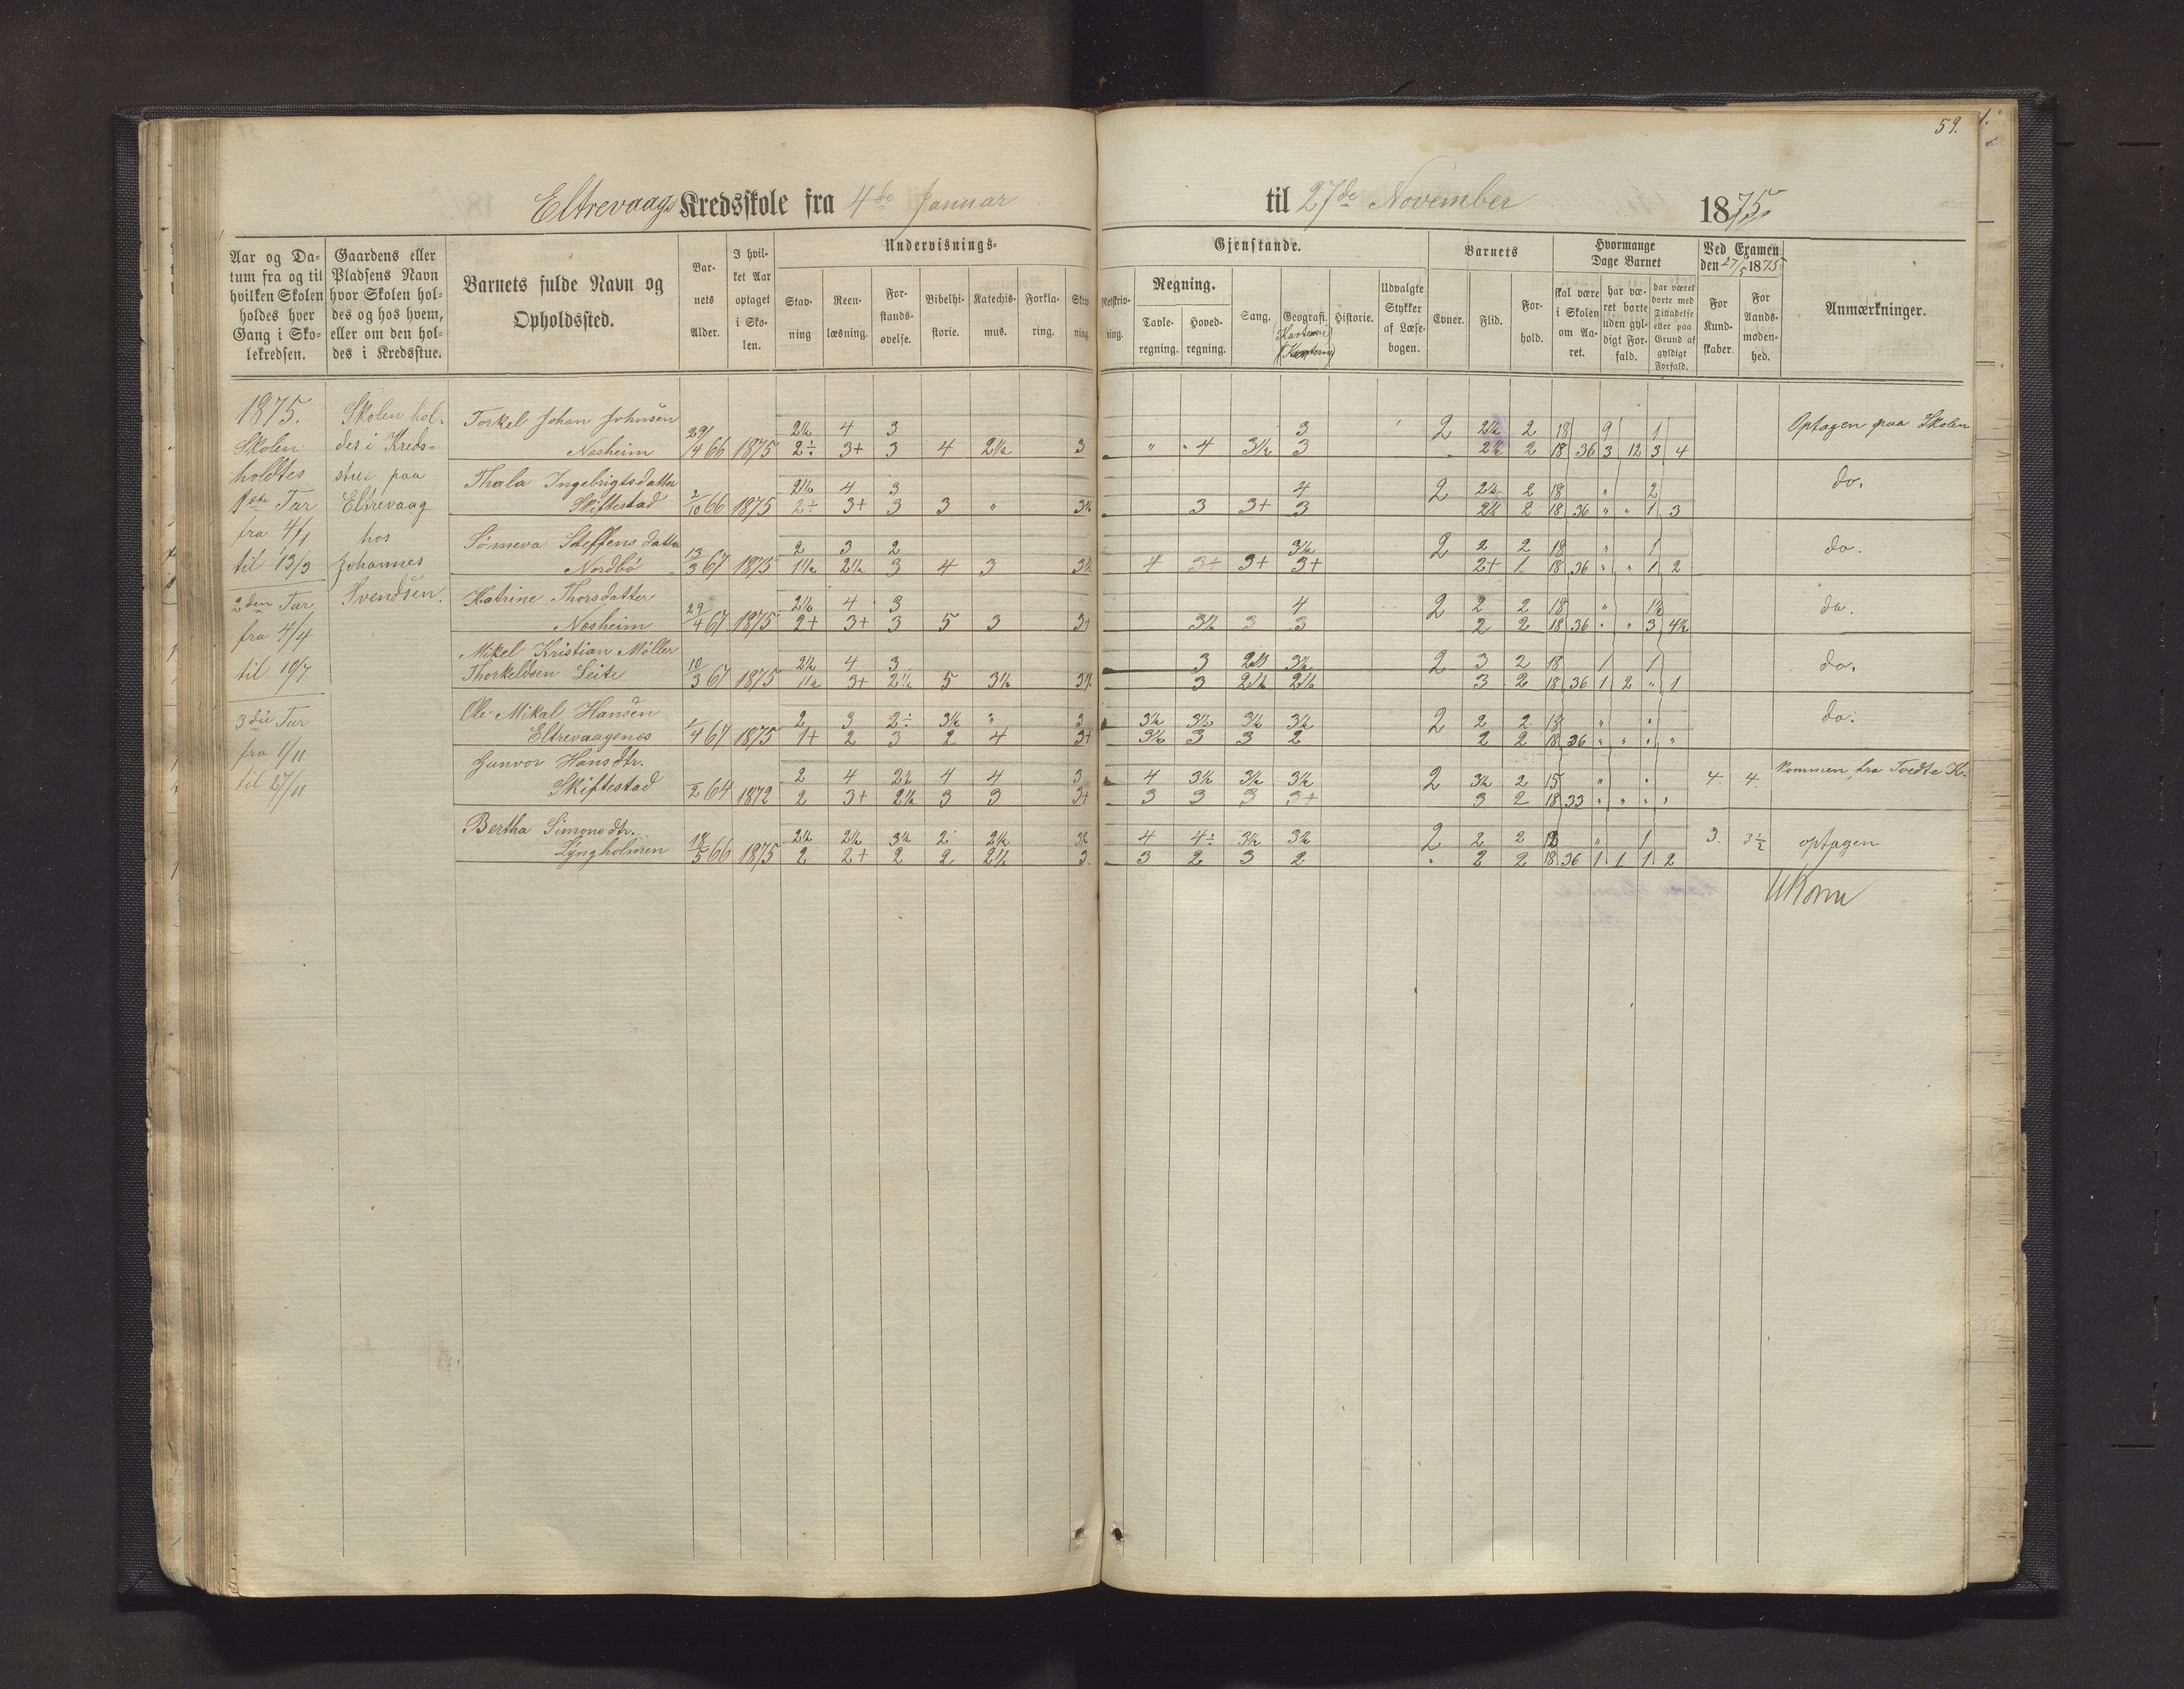 59.
Eltrevaags Kredsskole fra 4de Januar til 27de November 1875.
Aar og Da-
tum fra og til
hvilken Skolen
holdes hver
Gang i Sko-
lekredsen.
Gaardens eller
Pladsens Navn
hvor Skolen hol-
des og hos hvem,
eller om den hol-
des i Kredsstue.
Barnets fulde Navn og
Opholdssted.
Bar-
nets
Alder.
I hvil-
ket Aar
optaget
i Sko-
len.
Undervisnings-
Stav-
ning
Reen-
læsning.
For-
stands-
øvelse.
Bibelhi-
storie.
Katechis-
mus.
Forkla-
ring.
Skriv-
ning.
Gjenstande.
Retskriv-
ning.
Regning.
Tavle-
regning.
Hoved-
regning.
Sang.
Geografi.
Historie.
Udvalgte
Stykker
af Læse-
bogen.
Barnets
Evner.
Flid.
For-
hold.
Hvormange
Dage Barnet
skal være
i Skolen
om Aa-
ret.
har væ-
ret borte
uden gyl-
digt For-
fald.
har været
borte med
Tilladelse
eller paa
Grund af
gyldigt
Forfald.
Ved Examen
den 27/5 1875
For
Kund-
skaber.
For
Aands-
moden-
hed.
Anmærkninger.
1875.
Skolen
holdtes
1ste Tur
fra 4/1
til 13/3
2den Tur
fra 4/4
til 10/7
3die Tur
fra 1/11
til 27/11
Skolen hol-
des i Kreds-
stue paa
Eltrevaag
hos
Johannes
Svendsen.
Torkel Johan Johnsen 2½ 4 3 3 2 2½ 2 18 9 1 Optagen paa Skolen
Nosheim 29/4 66 1875 2÷ 3+ 3 4 2½ 3 " " 4 3½ 3 2½ 2 18 36 3 12 3 4
Thala Ingebrigtsdatter 2½ 4 3 4 2 2½ 2 18 " 2 do.
Skiftestad 2/10 66 1875 2+ 3+ 3 3 " 3½ 3 3+ 3 2½ 2 18 36 " " 1 3
Sönneva Steffensdatter 2 3 2 3½ 2 2 2 18 " 1 do.
Nordbö 13/3 67 1875 1½ 2½ 3 4 3 3½ 4 3+ 3+ 3+ 2+ 1 18 36 " " 1 2
Katrine Thorsdatter 2½ 4 3 4 2 2 2 18 " 1½ do.
Nosheim 29/4 67 1875 2+ 3+ 3 5 3 3+ 3½ 3 3 2 2 18 36 " " 3 4½
Mikel Kristian Möller 2½ 4 3 3 2½ 3½ 2 3 2 18 1 1 do.
Thorkeldsen Leite 10/3 67 1875 1½ 3+ 2½ 5 3½ 3½ 3 2½ 2½ 3 2 18 36 1 2 " 1
Ole Mikal Hansen 2 3 2÷ 3½ " 3 3½ 3½ 3½ 3½ 2 2 2 18 " " do.
Eltrevaagsnes 1/4 67 1875 1+ 2 3 2 4 3+ 3½ 3 3 2 2 2 18 36 " " " "
Gunvor Hansdtr. 2 4 2½ 4 4 3 4 3½ 3½ 3½ 2 3½ 2 15 " " 4. 4. Kommen fra Tvedte K.
Skiftestad /2 64 1872 2 3+ 2½ 3 3 3+ 3 3 3 3+ 3 2 18 33 " " " "
Bertha Simonsdtr. 2½ 2½ 3½ 2 2½ 3½ 4 4÷ 3½ 3½ 2 2 2 18 " 1 3. 3½ optagen
Lyngholmen 18/5 66 1875 2 2+ 2 2 2½ 3 3 2 3 2 2 2 18 36 1 1 1 2